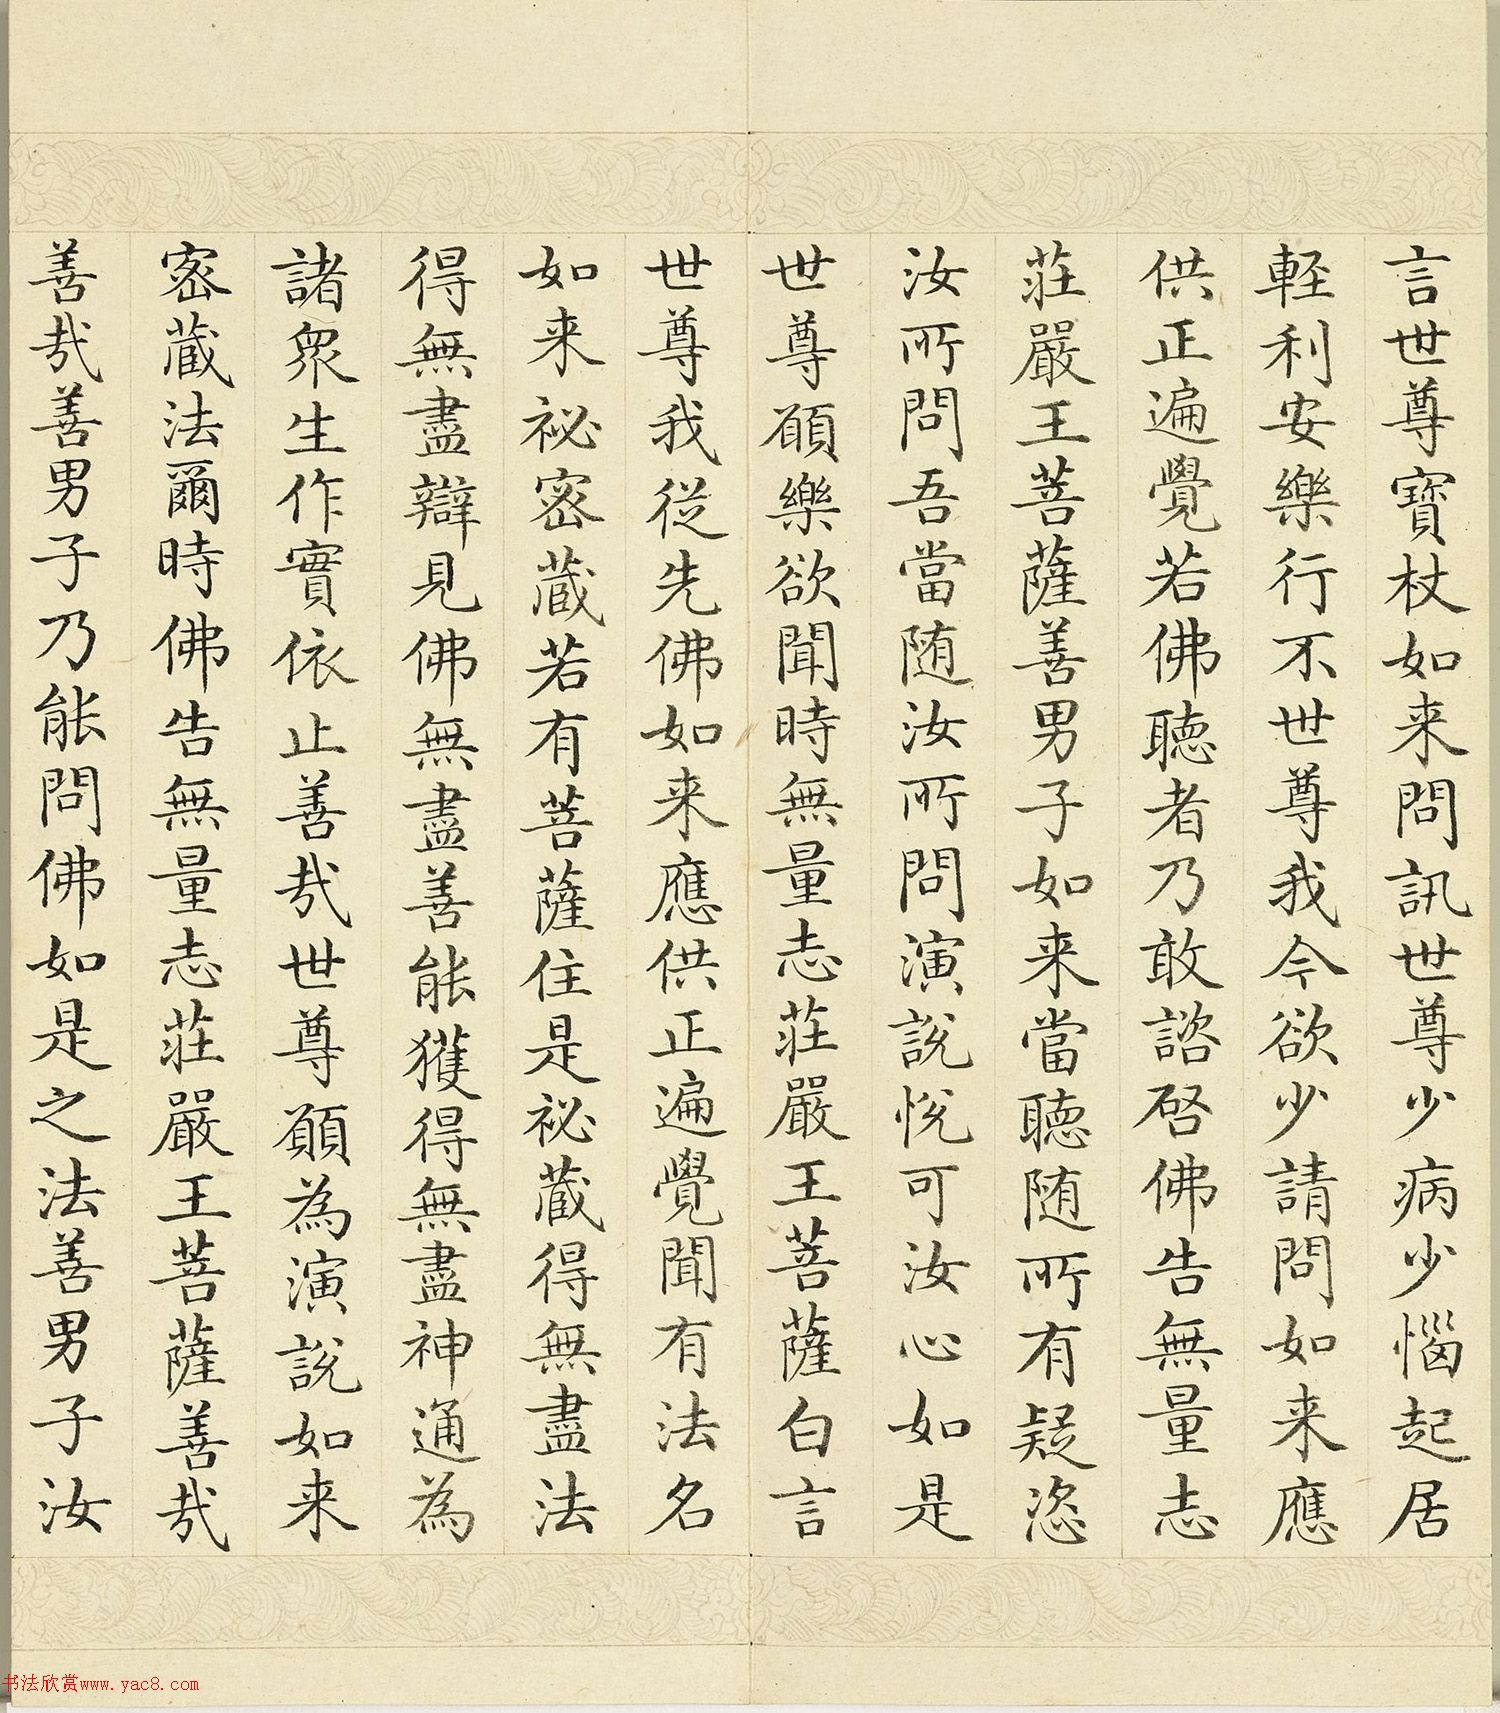 言世尊寶杖如来問訊世尊少病少惱起居
輕利安樂行不世尊我今欲少請問如来應
供正遍覺若佛聽者乃敢諮啓佛告無量志
莊嚴王菩薩善男子如来當聽随所有疑恣
汝所問吾當随汝所問演說悅可汝心如是
世尊願樂欲聞時無量志莊嚴王菩薩白言
世尊我從先佛如来應供正遍覺聞有法名
如来祕密蔵若有菩薩住是祕蔵得無盡法
得無盡辯見佛無盡善能獲得無盡神通為
諸衆生作實依止善哉世尊願為演說如来
密蔵法爾時佛告無量志莊嚴王菩薩善哉
善哉善男子乃能問佛如是之法善男子汝
书法欣赏www.yac8.com